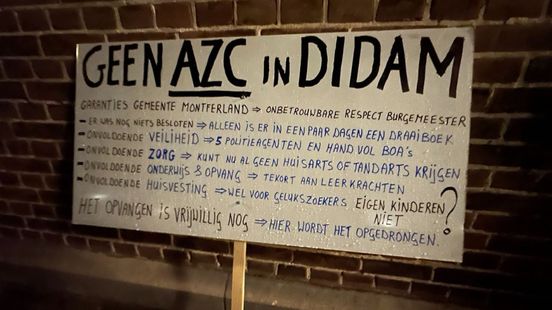 GEEN AZC IN DIDAM
GARANTIES GEMEENTE MONTFERLAND ⇒ ONBETROUWBARE RESPECT BURGEMEESTER
- ER WAS NOG NIETS BESLOTEN ⇒ ALLEEN IS ER IN EEN PAAR DAGEN EEN DRAAIBOEK
- ONVOLDOENDE VEILIHEID ⇒ 5 POLITIEAGENTEN EN HAND VOL BOA'S
- ONVOLDOENDE ZORG ⇒ KUNT NU AL GEEN HUISARTS OF TANDARTS KRIJGEN
- ONVOLDOENDE ONDERWIJS & OPVANG ⇒ TEKORT AAN LEERKRACHTEN
- ONVOLDOENDE HUISVESTING ⇒ WEL VOOR GELUKSZOEKERS EIGEN KINDEREN NIET?
HET OPVANGEN IS VRIJWILLIG NOG ⇒ HIER WORDT HET OPGEDRONGEN.